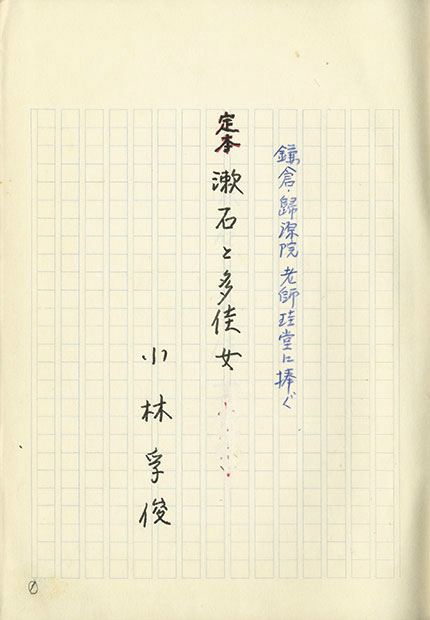 鎌倉・歸源院 老師珪堂に捧ぐ
定本 漱石と多佳女
小林孚俊
0